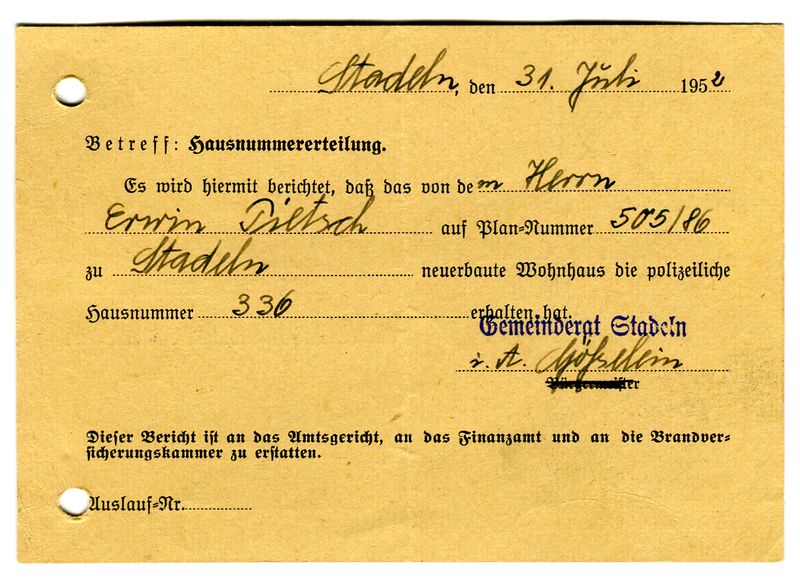 Stadeln, den 31. Juli 1952
Betreff: Hausnummererteilung.
Es wird hiermit berichtet, daß das von dem Herrn
Erwin Tietsch auf Plan-Nummer 505/86
zu Stadeln neuerbaute Wohnhaus die polizeiliche
Hausnummer 336 erhalten hat.
Gemeinderat Stadeln
i. A.
Bürgermeister
Dieser Bericht ist an das Amtsgericht, an das Finanzamt und an die Brandver-
sicherungskammer zu erstatten.
Auslauf-Nr.